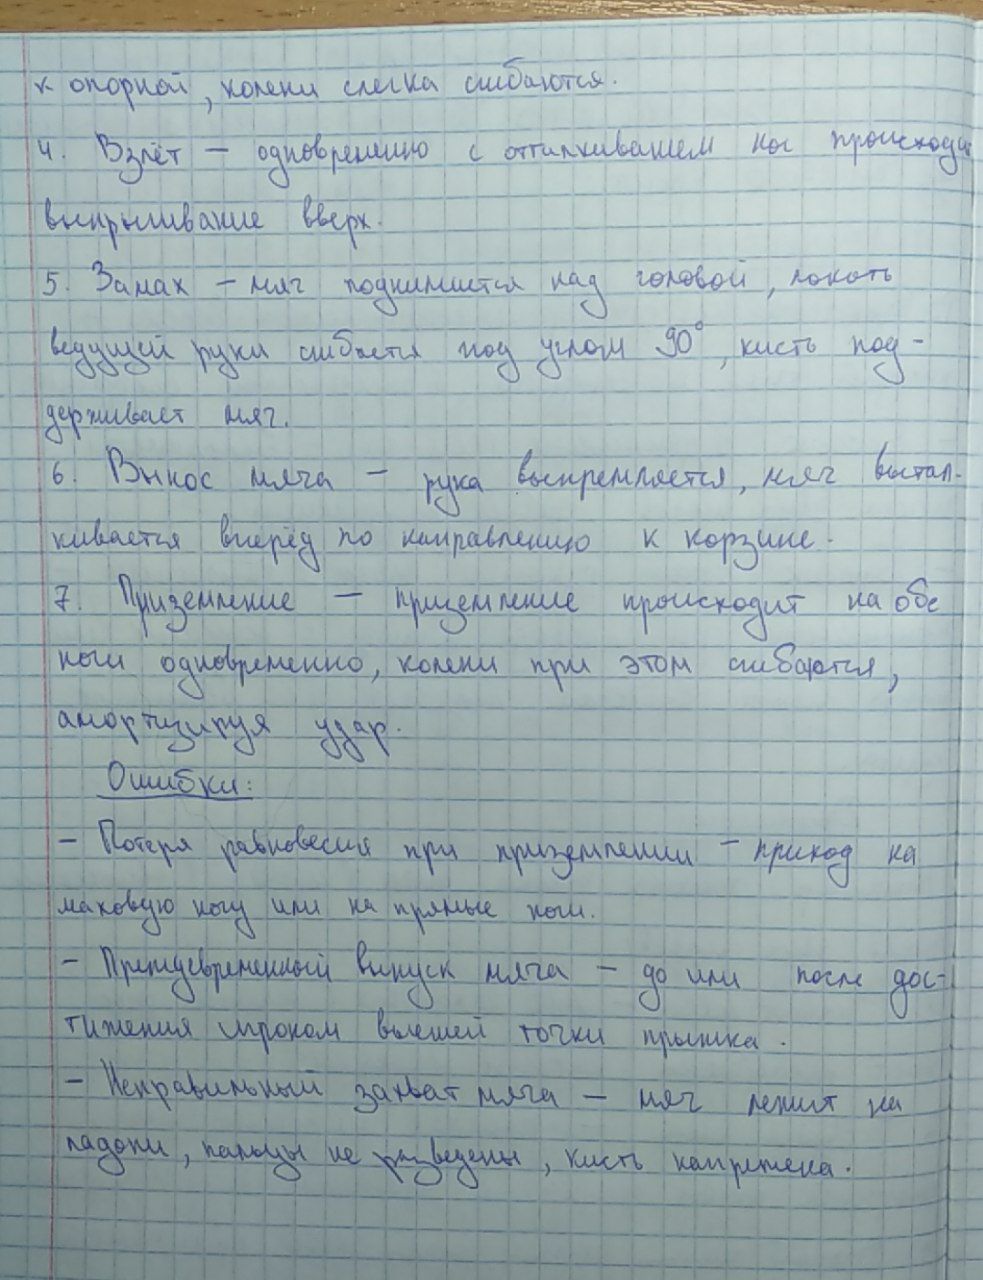 к опорной, колени слегка сгибаются.
4. Взлёт – одновременно с отталкиванием ног происходит
выпрыгивание вверх.
5. Замах – мяч поднимается над головой, локоть
ведущей руки сгибается под углом 90°, кисть под-
держивает мяч.
6. Вынос мяча – рука выпрямляется, мяч вытал-
кивается вперёд по направлению к корзине.
7. Приземление – приземление происходит на обе
ноги одновременно, колени при этом сгибаются,
амортизируя удар.
Ошибки:
– Потеря равновесия при приземлении – приход на
маховую ногу или на прямые ноги.
– Преждевременный выпуск мяча – до или после дос-
тижения игроком высшей точки прыжка.
– Неправильный захват мяча – мяч лежит на
ладони, пальцы не разведены, кисть напряжена.